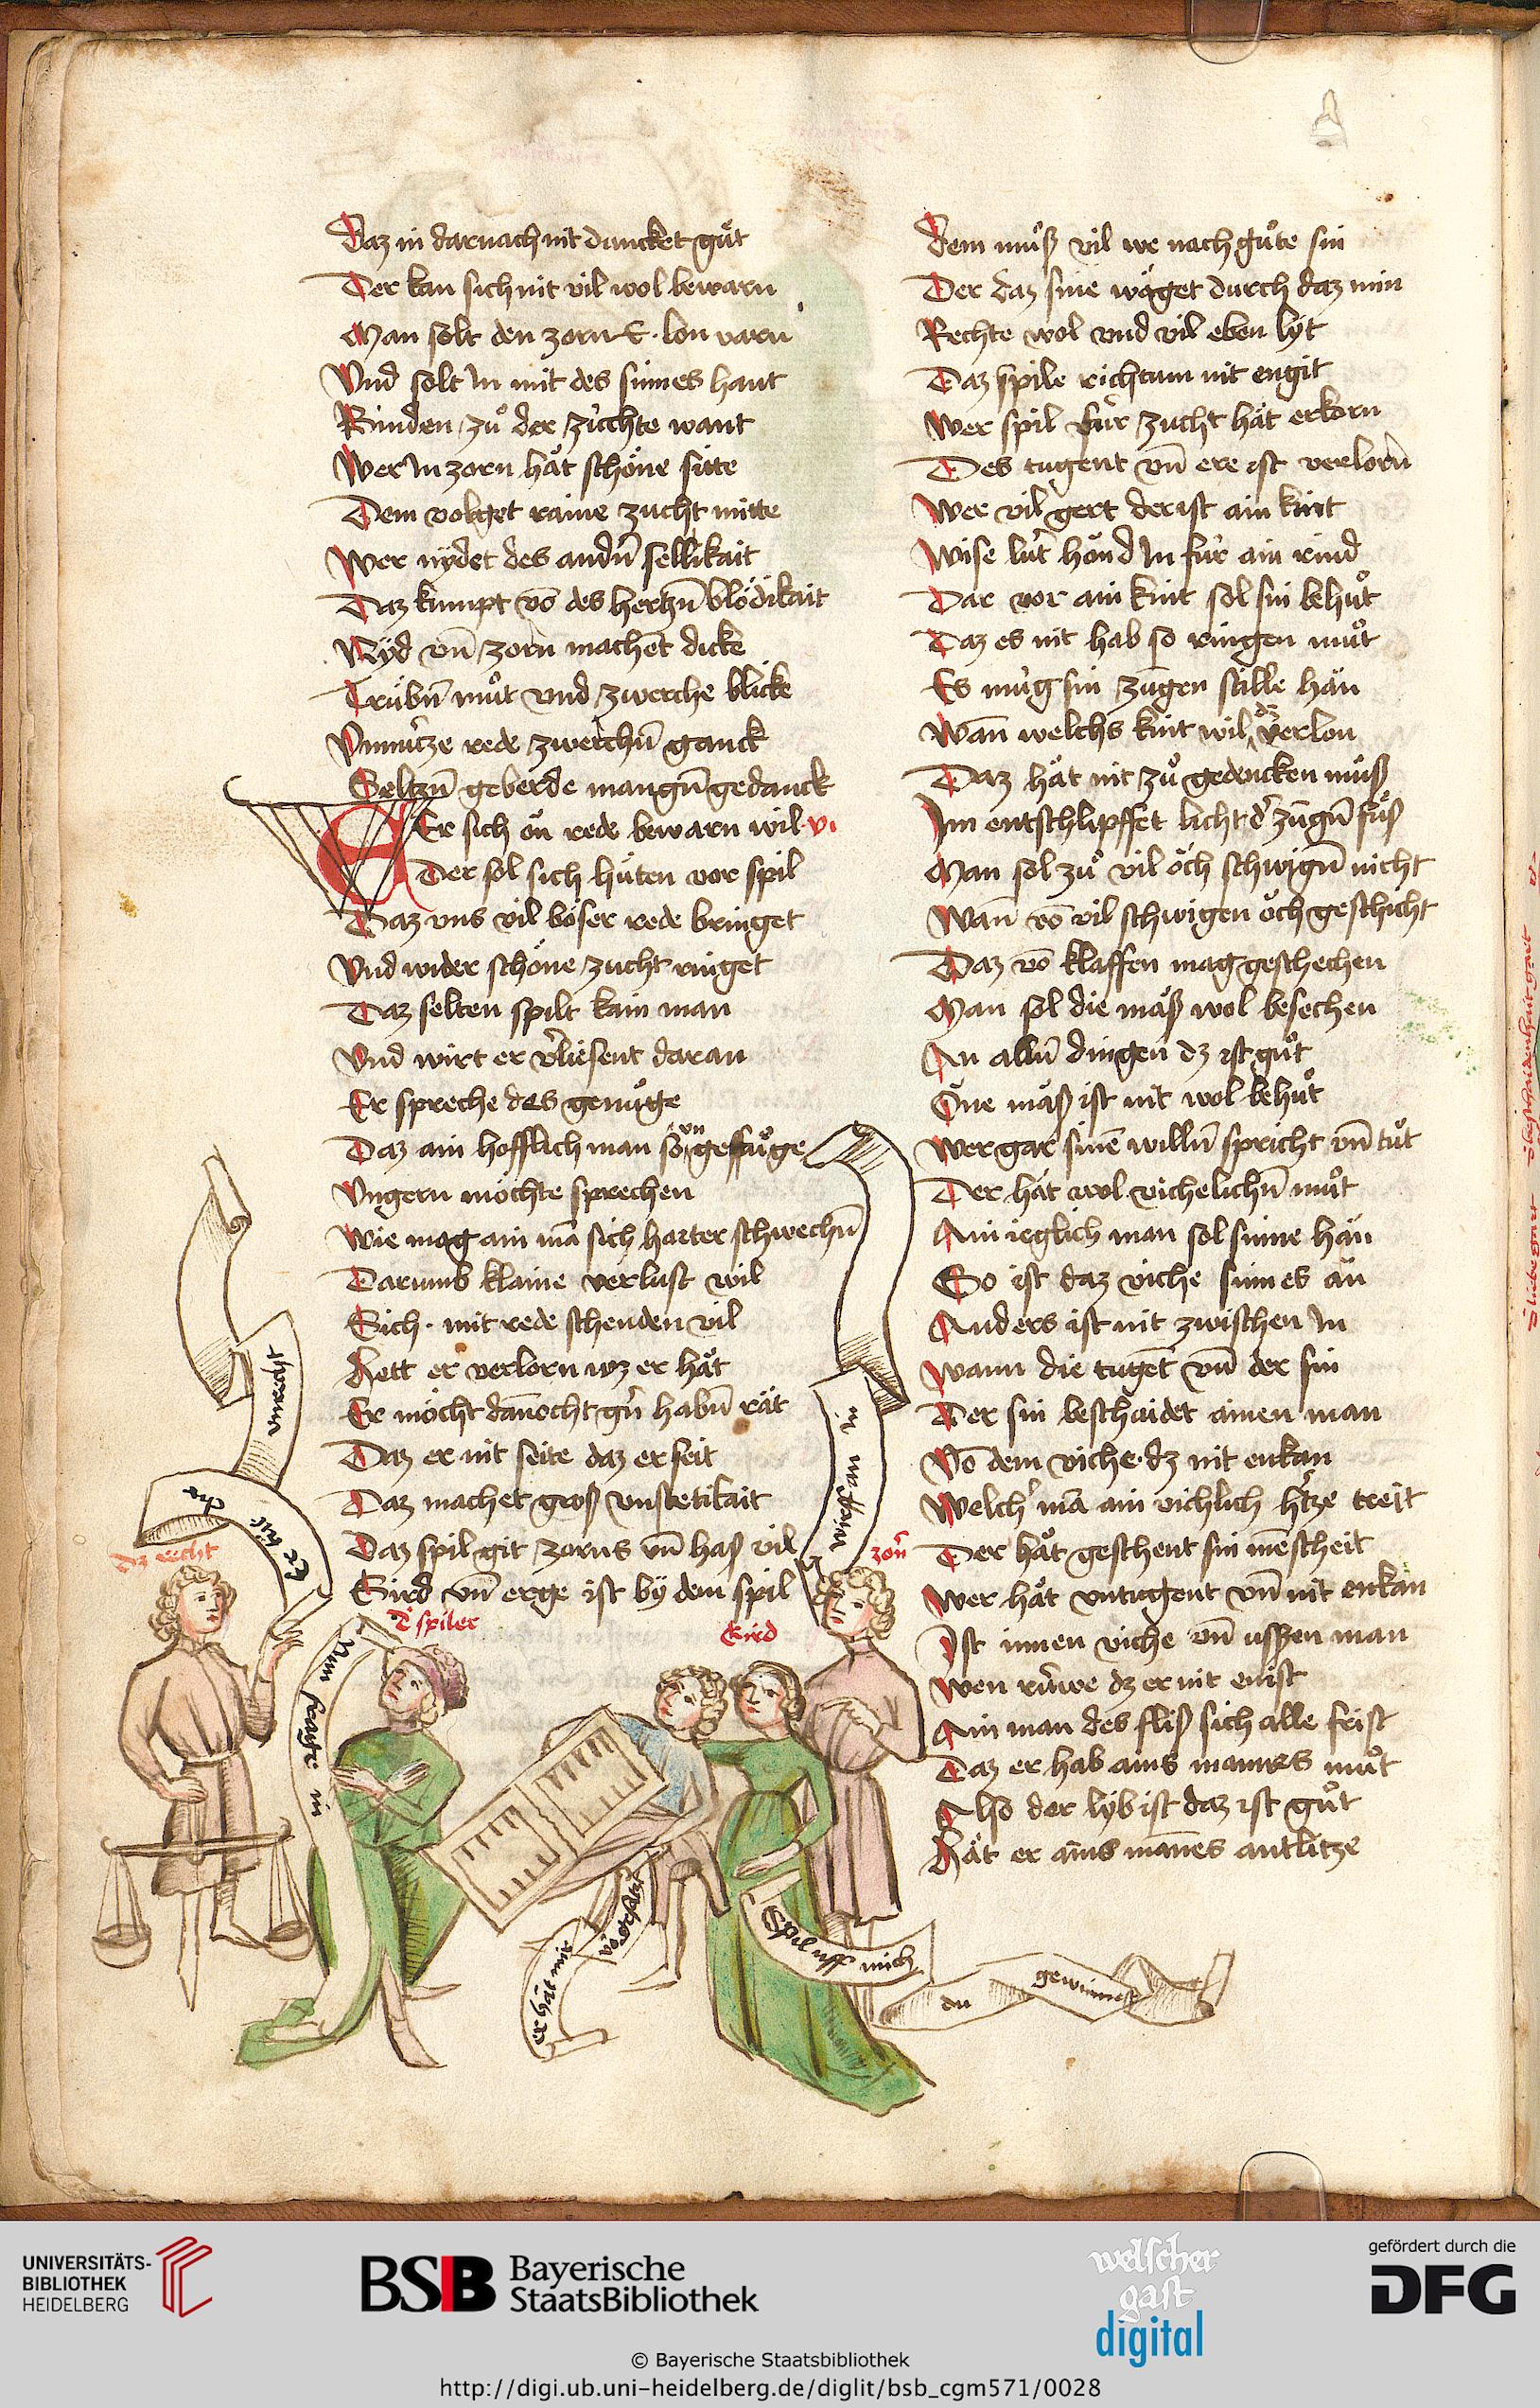 Daz in darnach nit duncket gůt
Der kan sich nit vil wol bewarn
Man solt den zorn E · lon varn
Vnd solt In mit des sinnes hant
Binden zů der zúchte want
Wer In zorn hǎt schöne sitte
Dem volget raine zucht mitte
Wer nÿdet des andn̄ sellikait
Daz kumpt vō des hertzn̄ blödikait
Nÿd vn̄ zorn machet dicke
Trübn̄ můt vnd zwerche blicke
Vnnútze rede zwerchn̄ ganck
Seltzn̄ geberde mangn̄ gedanck
Er sich ǎn rede bewarn wil · vi
Der sol sich hüten vor spil
Daz vns vil böser rede bringet
Vnd wider schöne zucht ringet
Daz selten spilt kain man
Vnd wirt er v̾liesent daran
Er spreche des genůge
Daz ain hofflich man so vn gefůge
Vngern möchte sprechen
Wie mag ain mā sich harter schwechn̄
Darumb klaine verlust wil
Sich · mit rede schenden vil
Hett er verlorn wz er hǎt
Er möcht dānocht gn̄ habn̄ rǎt
Daz er nit seite daz er seit
Daz machet groß vnstetikait
Daz spil git zorns vn̄ haß vil
Gird vn̄ erge ist bÿ dem spil
Dem můß vil we nach gůte sin
Der daz sine wǎget durch daz min
Rechte wol vnd vil eben lÿt
Daz spile richtum nit engit
Wer spil für zucht hǎt erkorn
Des tugent vn̄ ere ist verlorn
Wer vil gert der ist ain kint
Wise lút hǒnd In fúr ain rind
Dar vor ain kint sol sin behůt
Daz es nit hab so ringen můt
Es múg sin zungen stille hǎn
Wan̄ welchs kint wil dz verlon
Daz hǎt nit zů gedencken můß
Im entschlipffet licht d̾ zungn̄ fůß
Man sol zů vil ǒch schwign̄ nicht
Wan̄ vō vil schwigen ǒch geschicht
Daz vō klaffen mag geschechen
Man sol die mǎß wol besechen
An alln̄ dingen dz ist gůt
One mǎß ist nit wol behůt
Wer gar sinē willn̄ spricht vn̄ tůt
Der hǎt wol vichelichn̄ můt
Ain ieglich man sol sinne hǎn
So ist daz viche sinnes ǎn
Anders ist nit zwischen In
Wann die tugēt vn̄ der sin
Der sin beschaidet ainen man
Vō dem viche · dz nit enkan
Welch̾ mā ain vichlich h̾tze treit
Der hǎt geschent sin mēscheit
Wer hǎt vntugent vn̄ nit enkan
Ist innen viche vn̄ ussen man
Wen rúwe dz er nit enist
Ain man des fliß sich alle frist
Daz er hab ains mannes můt
Also der lÿb ist daz ist gůt
Hǎt er ains mānes antlitze
vnrecht
Er tůt
dz recht
D̾ spiler
Gird
zorn
wirff an in
Nim
in
er hǎt mir
Spil uff mich
du
gewinnest
UNIVERSITÄTS-
BIBLIOTHEK
HEIDELBERG
BSB Bayerische
StaatsBibliothek
welscher
gast
digital
gefördert durch die
DFG
© Bayerische Staatsbibliothek
http://digi.ub.uni-heidelberg.de/diglit/bsb_cgm571/0028